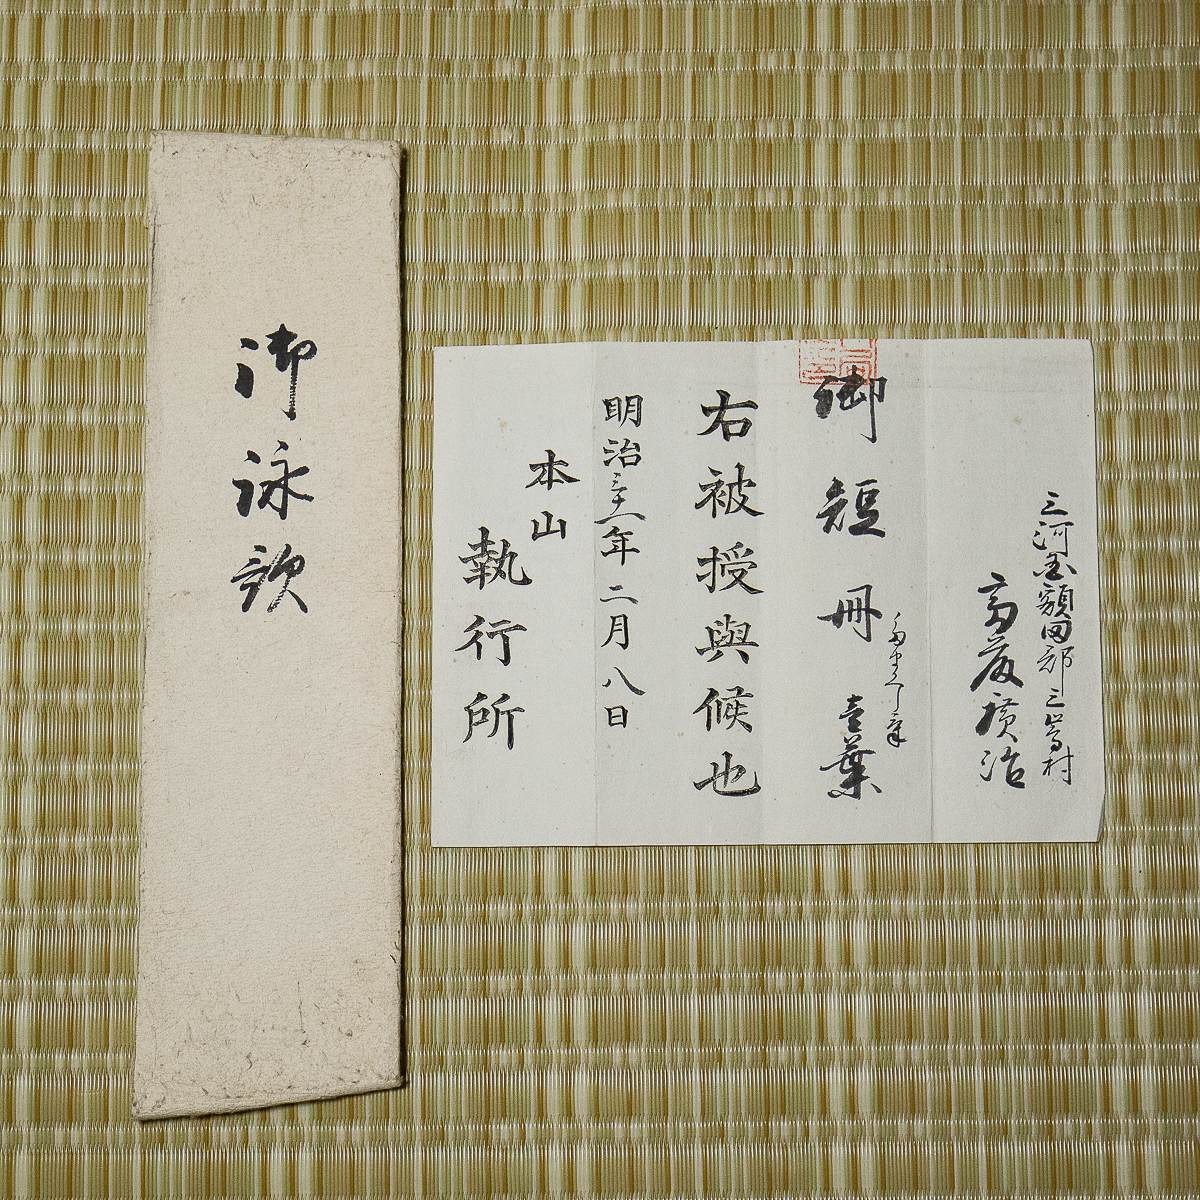 御詠歌
三河国額田郡三嶋村
斎藤廣治
御短冊
壹葉
右被授與候也
明治三十一年二月八日
本山
執行所